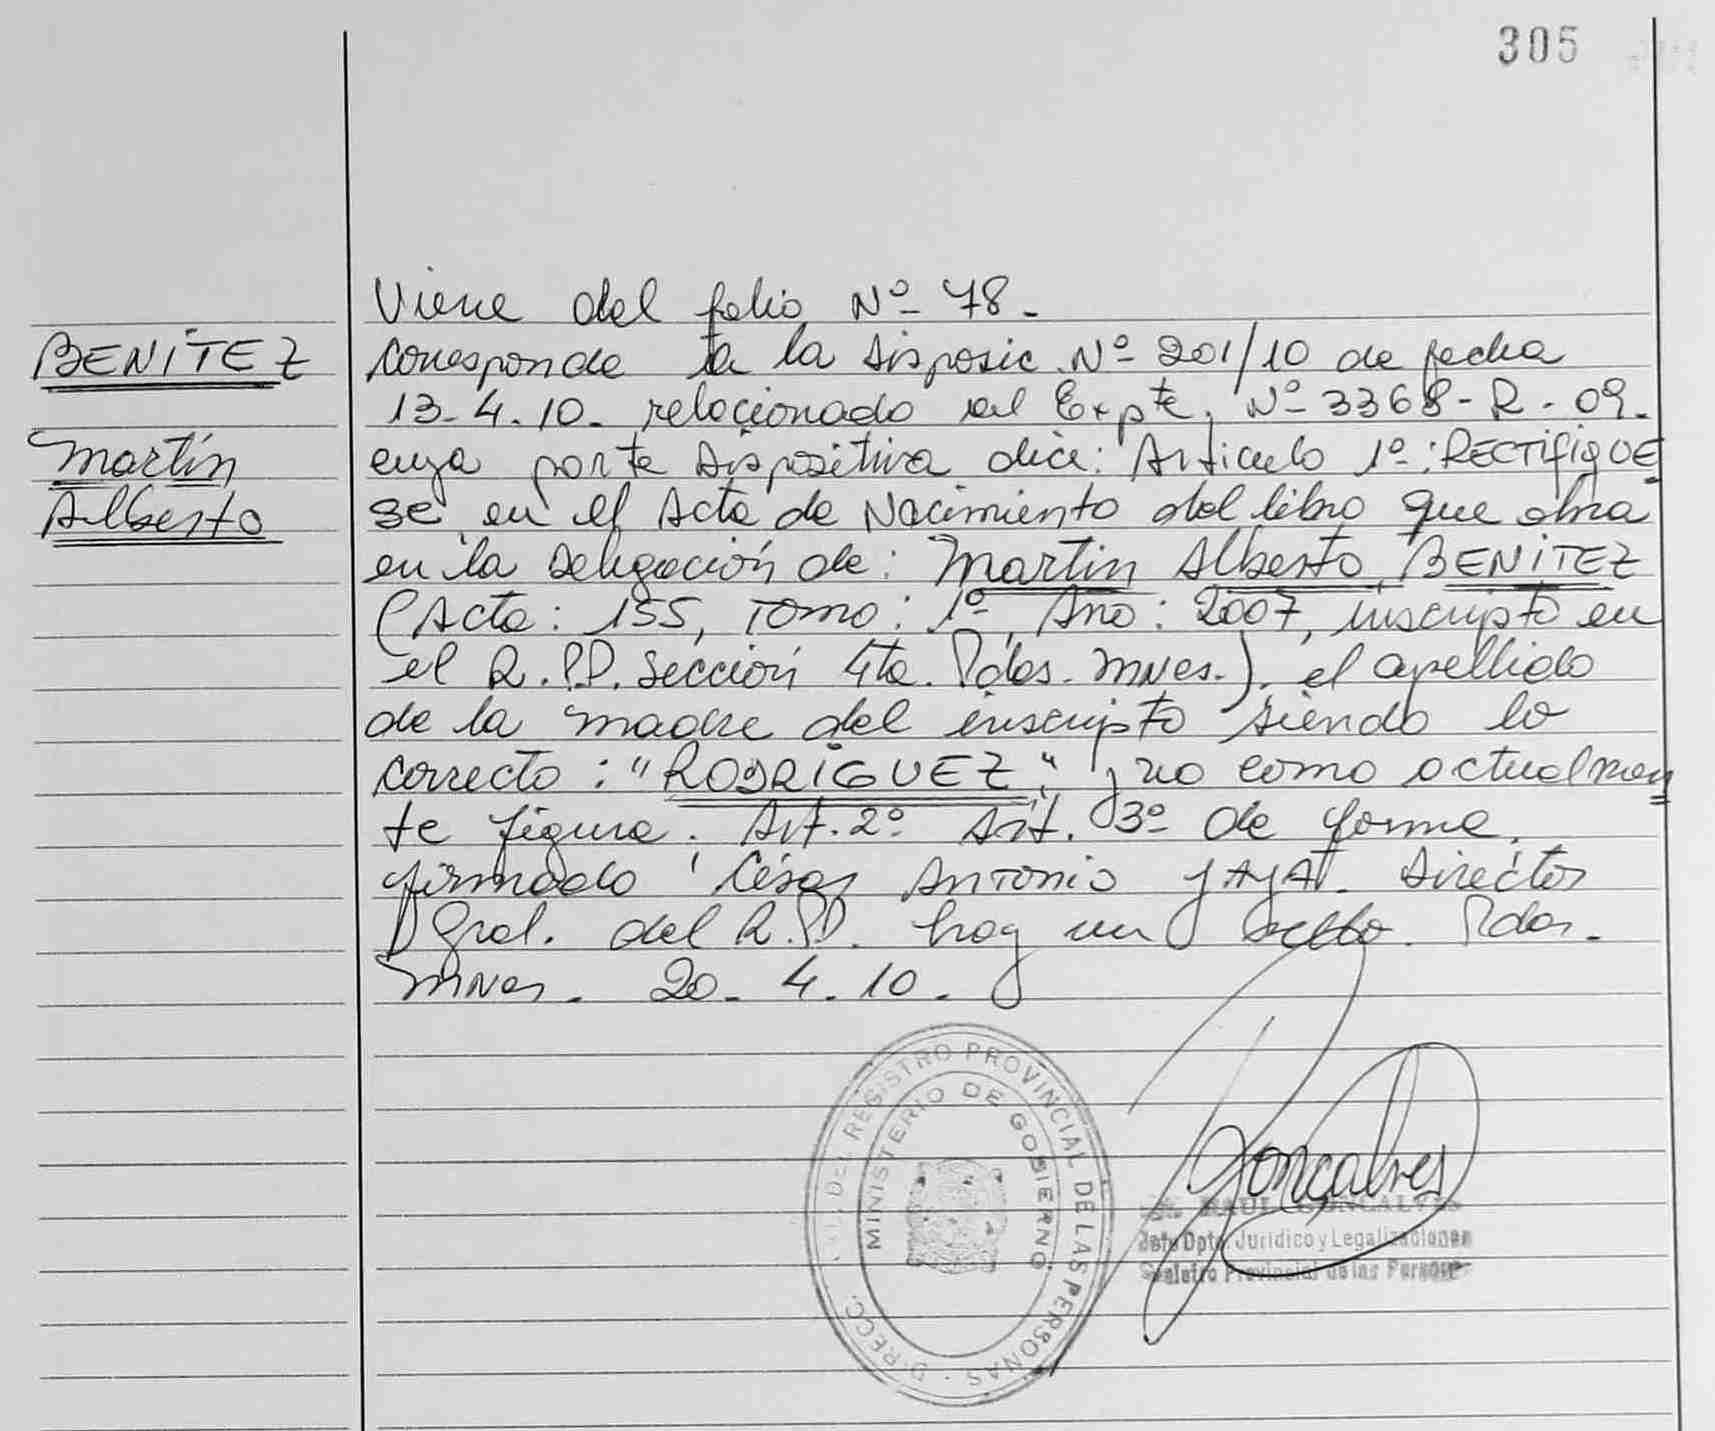 305
Viene del folio Nº 78.
BENÍTEZ
Martín
Alberto
Corresponde a la Disposic. Nº 201/10 de fecha
13-4.10. relacionado al Expte. Nº 3368-R-09.
cuya parte dispositiva dice: Articulo 1º: RECTIFIQUE
se en el Acta de Nacimiento del libro que obra
en la Delegación de: Martin Alberto BENÍTEZ
(Acta: 155, Tomo: 1º, Año: 2007, inscripto en
el R.P.P. Sección 4ta. Pdas. Mnes.). el apellido
de la madre del inscripto siendo lo
correcto: "RODRÍGUEZ" y no como actualmen
te figura. Art. 2º Art. 3º de forma.
firmado César Antonio YAYA. Director
Gral. del R.P.P. hay un sello. Pdas.
Mnes. 20-4.10.
DIRECC. DEL REGISTRO PROVINCIAL DE LAS PERSONAS
MINISTERIO DE GOBIERNO
Goncalves
RAUL GONCALVES
Jefe Dpto. Jurídico y Legalizaciones
Registro Provincial de las Personas